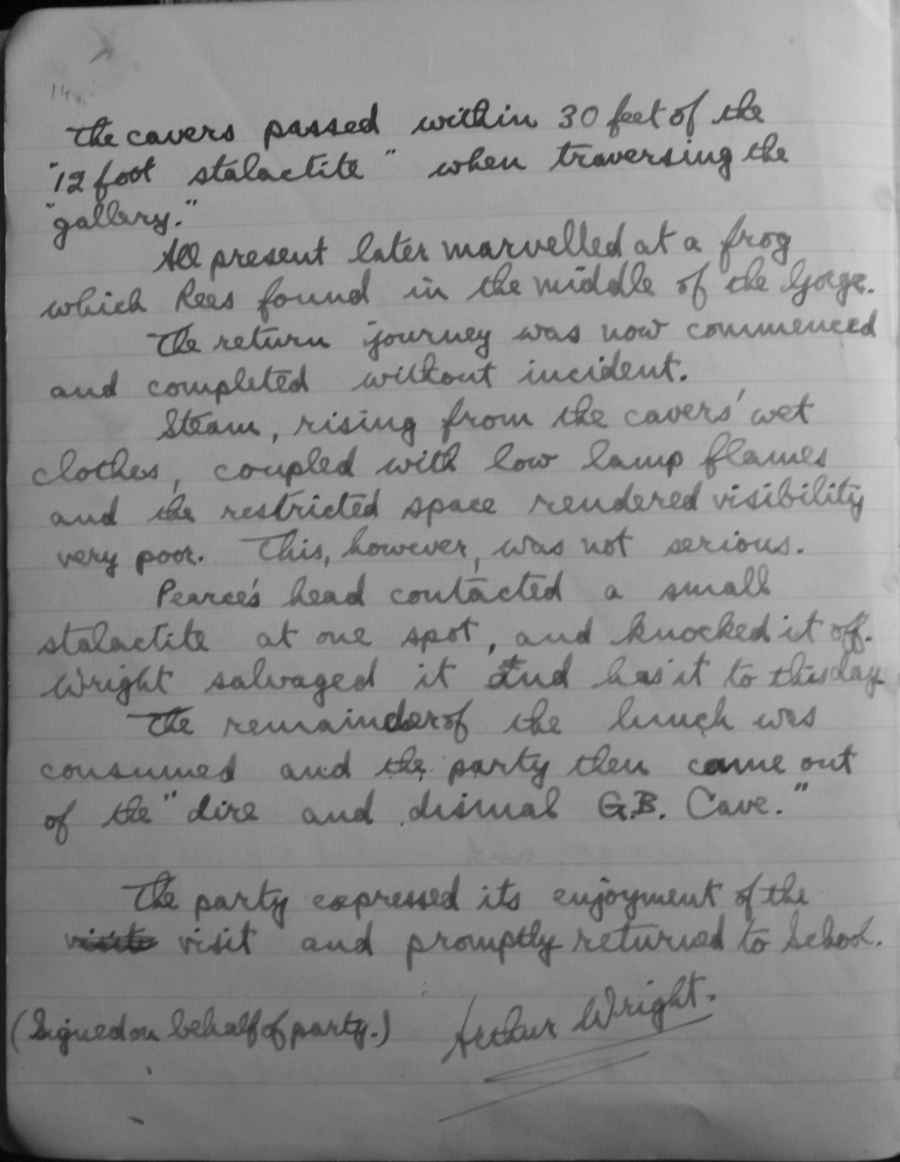 The cavers passed within 30 feet of the
"12 foot stalactite" when traversing the
"gallery."
All present later marvelled at a frog
which Rees found in the middle of the Gorge.
The return journey was now commenced
and completed without incident.
Steam, rising from the cavers' wet
clothes, coupled with low lamp flames
and the restricted space rendered visibility
very poor. This, however, was not serious.
Pearce's head contacted a small
stalactite at one spot, and knocked it off.
Wright salvaged it and has it to this day
The remainder of the lunch was
consumed and the party then came out
of the "dire and dismal G.B. Cave."
The party expressed its enjoyment of the
visit and promptly returned to School.
(Signed on behalf of party.) Arthur Wright.